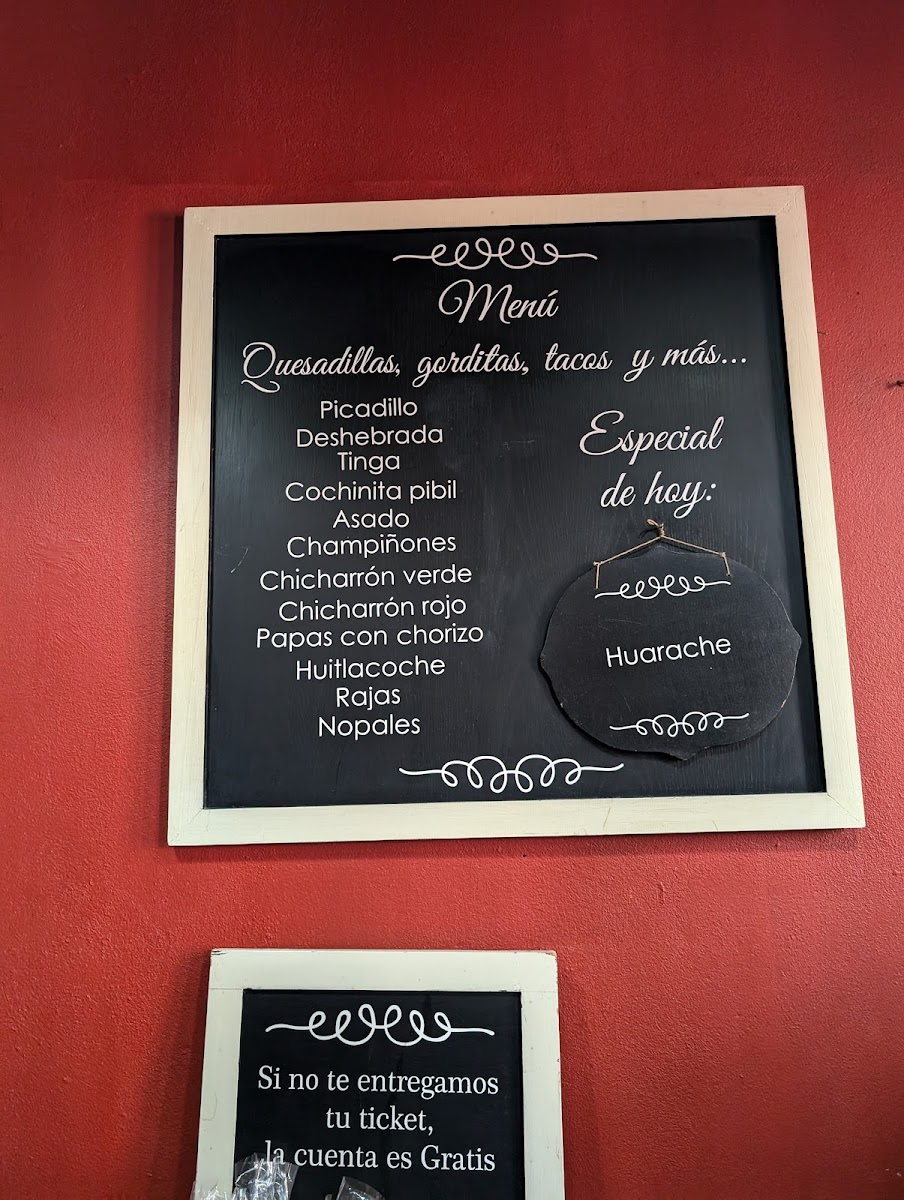 Menú
Quesadillas, gorditas, tacos y más...
Picadillo
Deshebrada
Tinga
Cochinita pibil
Asado
Champiñones
Chicharrón verde
Chicharrón rojo
Papas con chorizo
Huitlacoche
Rajas
Nopales
Especial
de hoy:
Huarache
Si no te entregamos
tu ticket,
la cuenta es Gratis